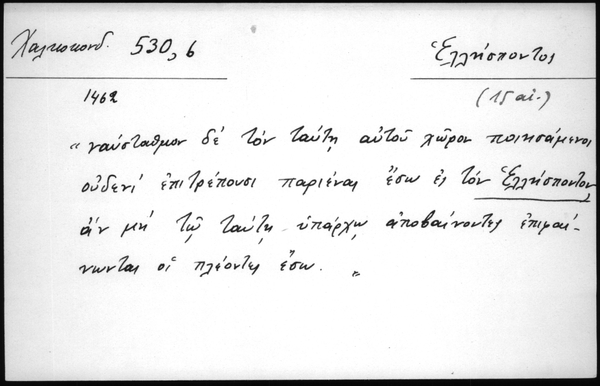 Χαλκοκονδ. 530,6 Ἑλλήσποντος
1462 (15 αἰ.)
"ναύσταθμον δέ τόν ταύτῃ αὐτοῦ χῶρον ποιησάμενοι
οὐδενί ἐπιτρέπουσι παριέναι ἔσω ἐς τόν Ἑλλήσποντον,
ἄν μή τῷ ταύτῃ ὑπάρχῳ ἀποβαίνοντες ἐπιφαί-
νωνται οἱ πλέοντες ἔσω. "